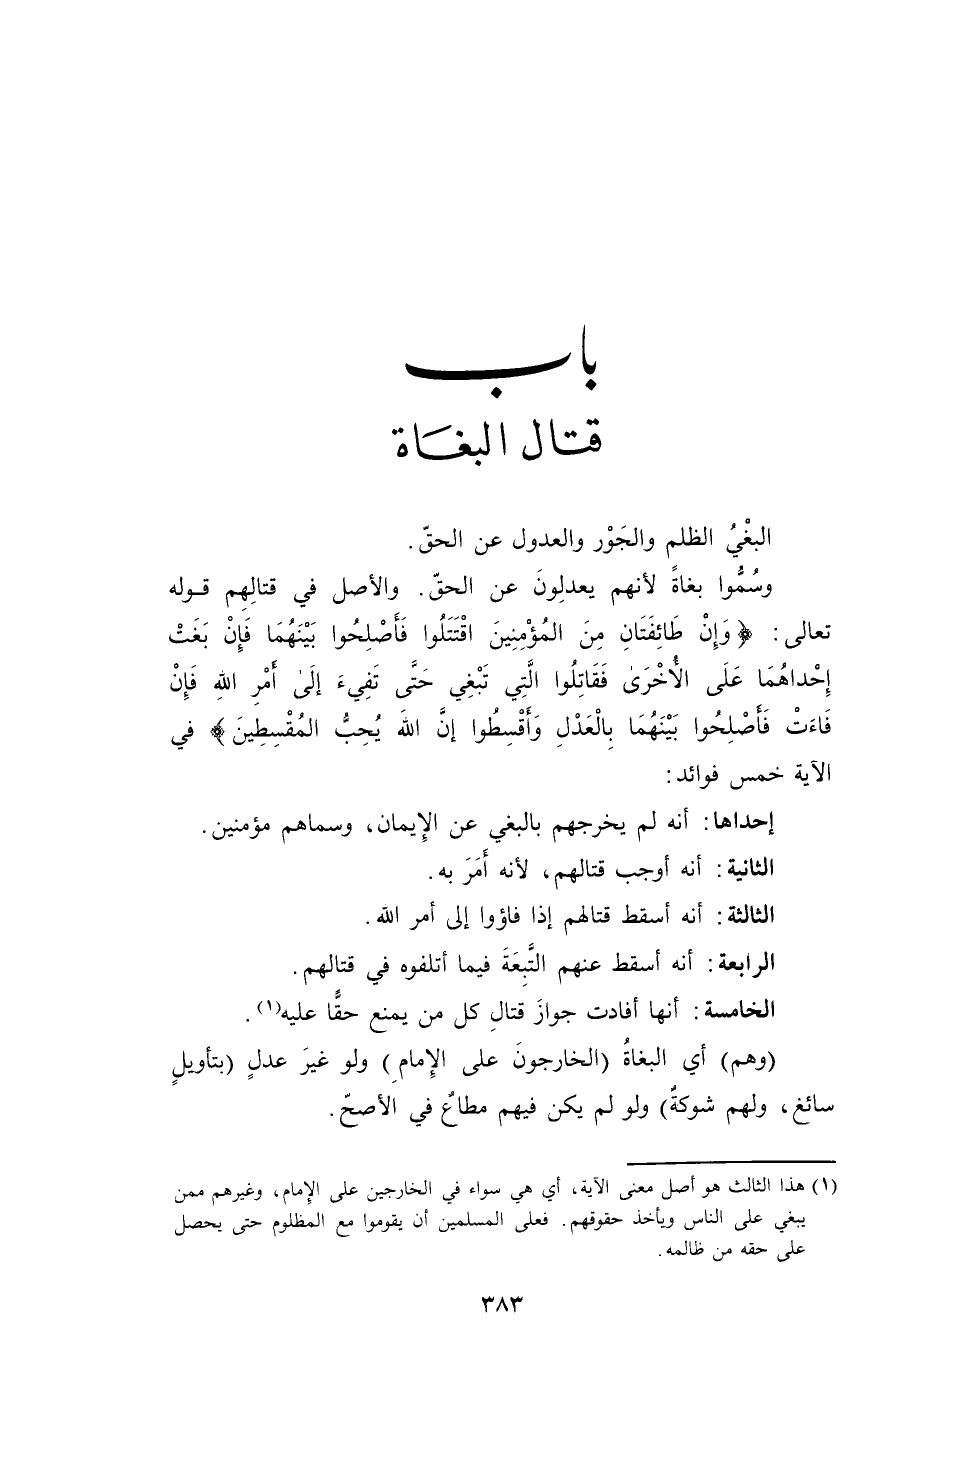 باب
قتال البغاة
البغْيُ الظلم والجَوْر والعدول عن الحقّ.
وسُمُّوا بغاةً لأنهم يعدلِونَ عن الحقّ. والأصل في قتالِهِم قوله
تعالى: ﴿وَإِنْ طَائِفَتَانِ مِنَ المُؤْمِنِينَ اقْتَتَلُوا فَأَصْلِحُوا بَيْنَهُمَا فَإِنْ بَغَتْ
إِحْداهُمَا عَلَى الأُخْرَىٰ فَقَاتِلُوا الَّتِي تَبْغِي حَتَّى تَفِيءَ إلَىٰ أَمْرِ اللهِ فَإِنْ
فَاءَتْ فَأَصْلِحُوا بَيْنَهُمَا بِالْعَدْلِ وَأَقْسِطُوا إنَّ اللهَ يُحِبُّ المُقْسِطِينَ﴾ في
الآية خمس فوائد:
إحداها: أنه لم يخرجهم بالبغي عن الإِيمان، وسماهم مؤمنين.
الثانية: أنه أوجب قتالهم، لأنه أَمَرَ به.
الثالثة: أنه أسقط قتالهم إذا فاؤوا إلى أمر الله.
الرابعة: أنه أسقط عنهم التَّبِعَةَ فيما أتلفوه في قتالهم.
الخامسة: أنها أفادت جوازَ قتالِ كل من يمنع حقًّا عليه(١).
(وهم) أي البغاةُ (الخارجونَ على الإِمامِ) ولو غيرَ عدلٍ (بتأويلٍ
سائغ، ولهم شوكةٌ) ولو لم يكن فيهم مطاعٌ في الأصحّ.
(١) هذا الثالث هو أصل معنى الآية، أي هي سواء في الخارجين على الإِمام، وغيرهم ممن
يبغي على الناس ويأخذ حقوقهم. فعلى المسلمين أن يقوموا مع المظلوم حتى يحصل
على حقه من ظالمه.
٣٨٣